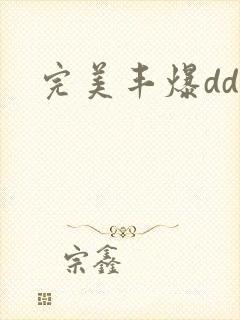 完美丰爆dd
宗鑫